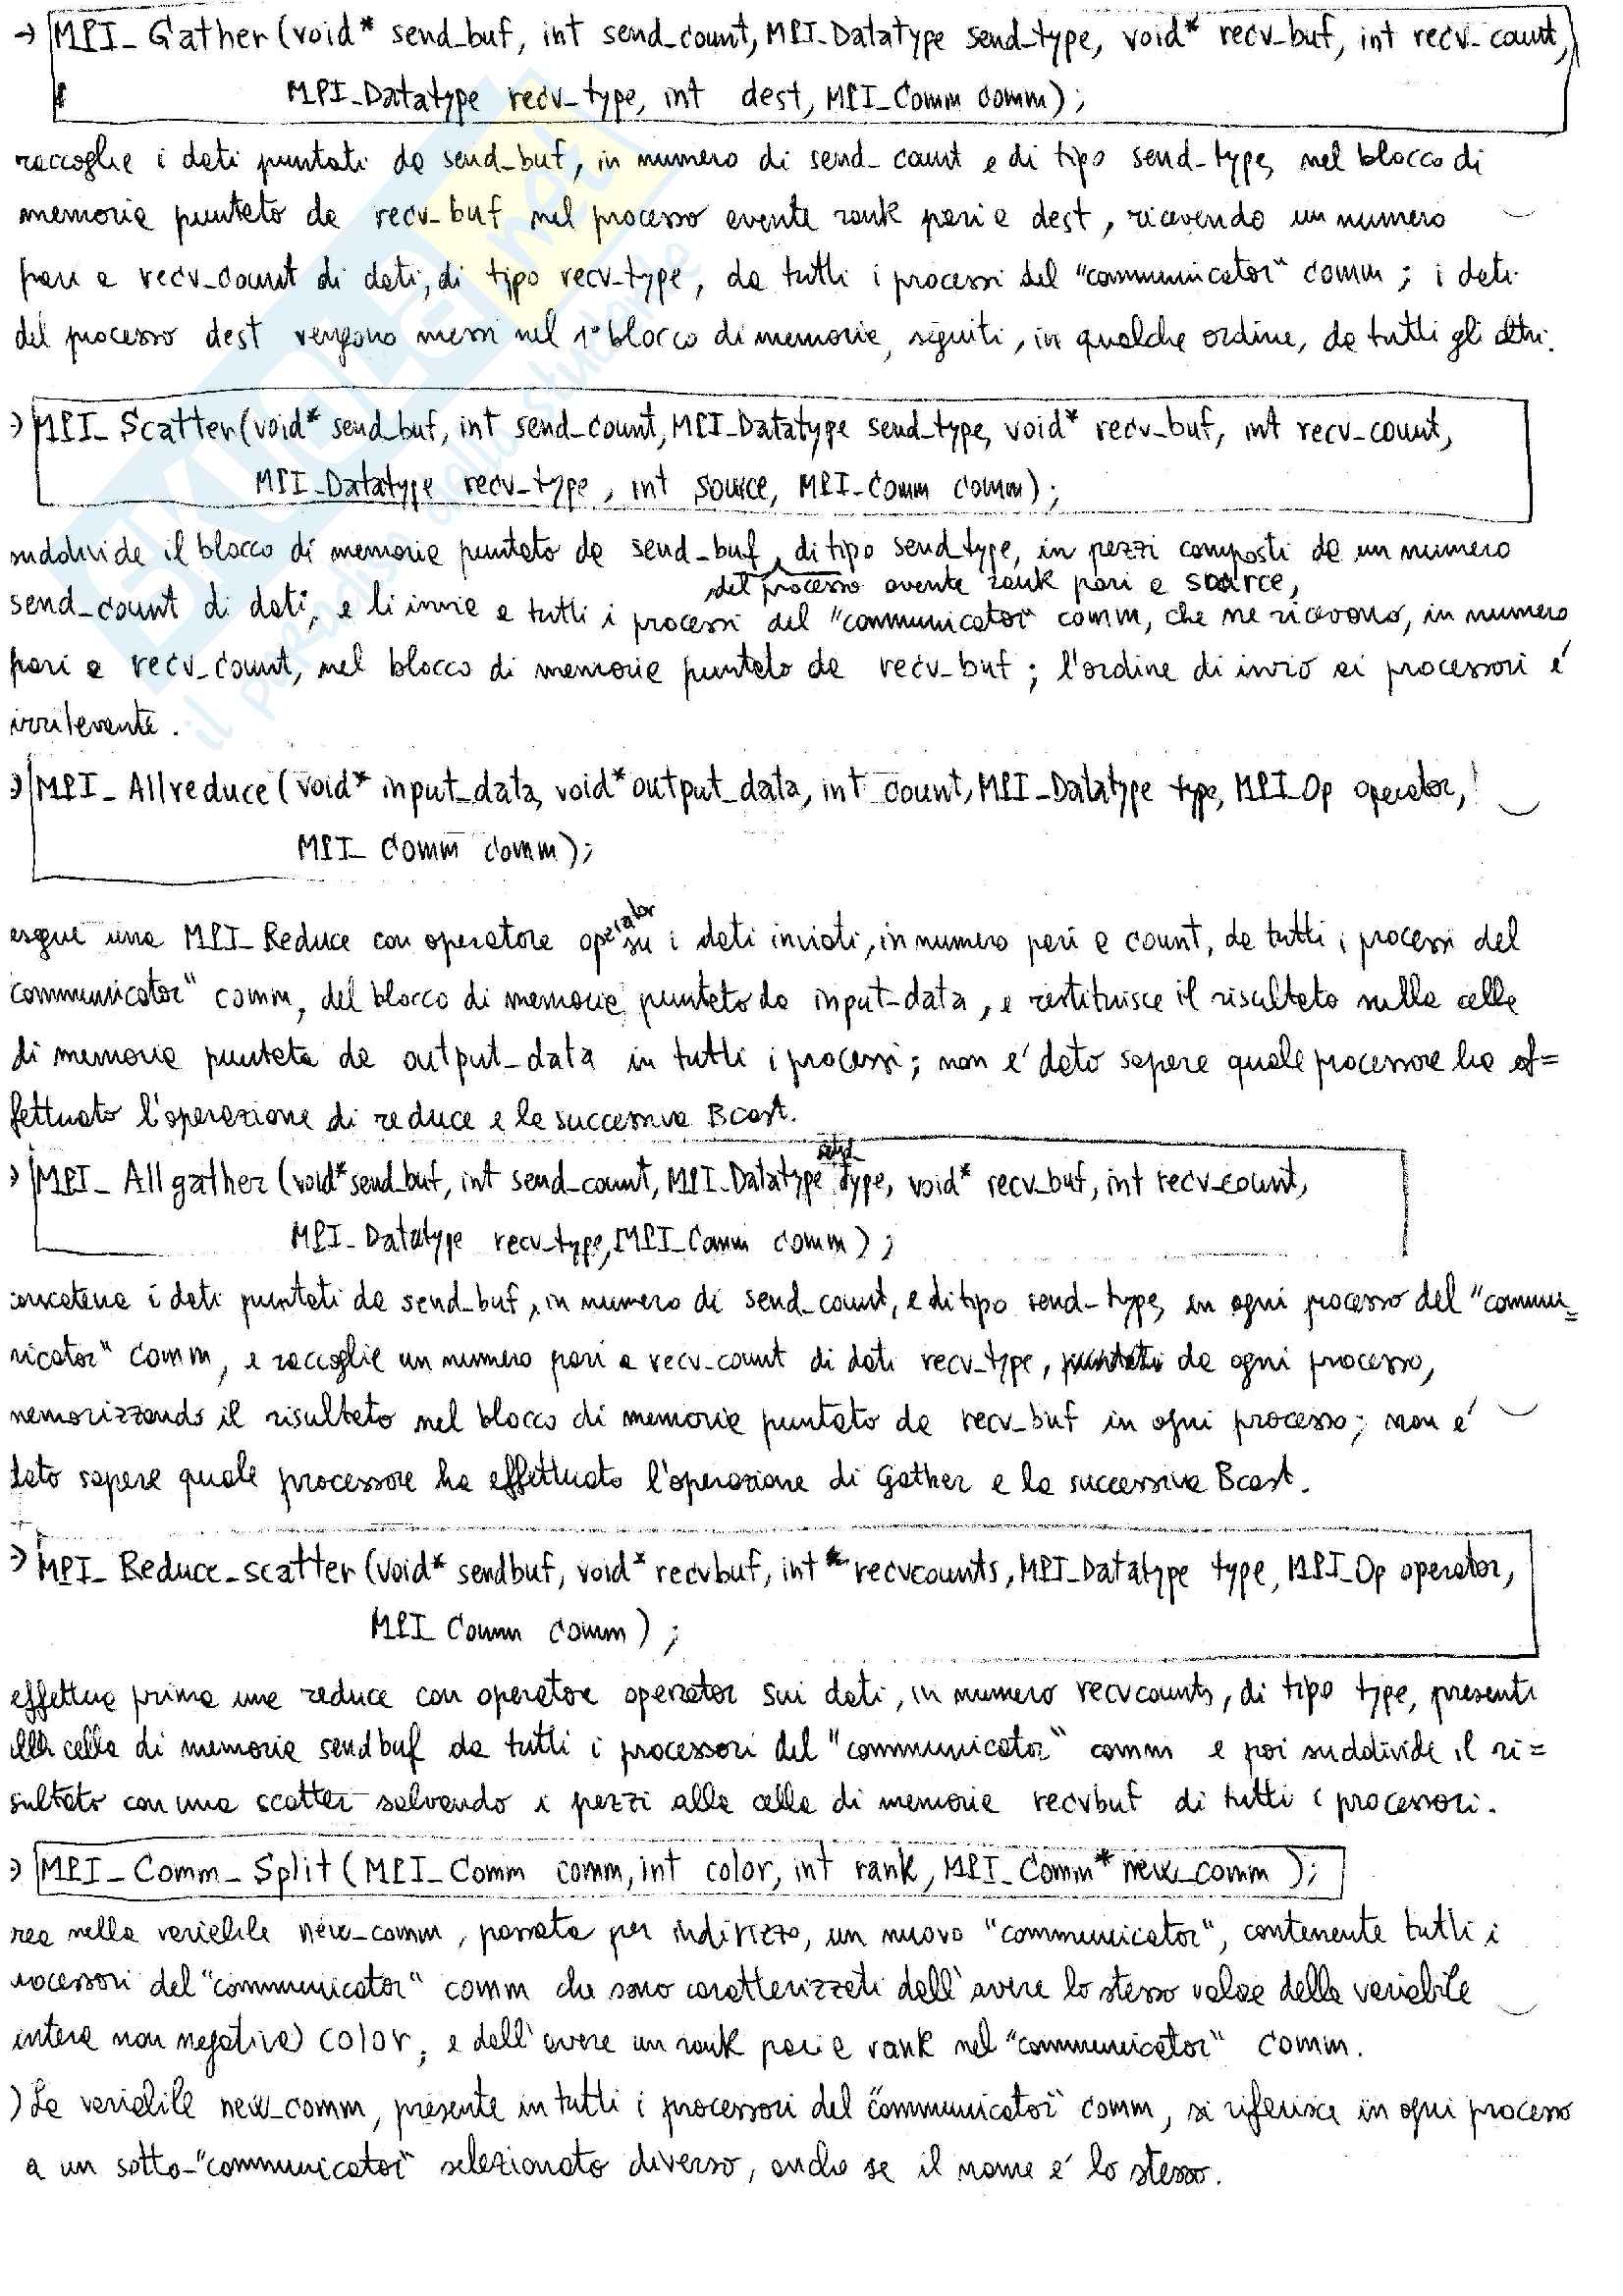 → MPI_Gather(void* send_buf, int send_count, MPI_Datatype send_type, void* recv_buf, int recv_count,
MPI_Datatype recv_type, int dest, MPI_Comm comm);
raccoglie i dati puntati da send_buf, in numero di send_count e di tipo send_type, nel blocco di
memoria puntato da recv_buf nel processo avente rank pari a dest, ricevendo un numero
pari a recv_count di dati, di tipo recv_type, da tutti i processi del "communicator" comm; i dati
del processo dest vengono messi nel 1° blocco di memoria, seguiti, in qualche ordine, da tutti gli altri.
→ MPI_Scatter(void* send_buf, int send_count, MPI_Datatype send_type, void* recv_buf, int recv_count,
MPI_Datatype recv_type, int source, MPI_Comm comm);
suddivide il blocco di memoria puntato da send_buf, di tipo send_type, in pezzi composti da un numero
del processo avente rank pari a source,
send_count di dati, e li invia a tutti i processi del "communicator" comm, che ne ricevono, in numero
pari a recv_count, nel blocco di memoria puntato da recv_buf; l'ordine di invio ai processori é
irrilevante.
→ MPI_Allreduce(void* input_data, void* output_data, int count, MPI_Datatype type, MPI_Op operator,
MPI_Comm comm);
esegue una MPI_Reduce con operatore operator su i dati inviati, in numero pari a count, da tutti i processi del
"communicator" comm, del blocco di memoria puntato da input_data, e restituisce il risultato nella cella
di memoria puntata da output_data in tutti i processi; non é dato sapere quale processore ha ef=
fettuato l'operazione di reduce e la successiva Bcast.
→ MPI_Allgather(void* send_buf, int send_count, MPI_Datatype send_type, void* recv_buf, int recv_count,
MPI_Datatype recv_type, MPI_Comm comm);
concatena i dati puntati da send_buf, in numero di send_count, e di tipo send_type, in ogni processo del "commu=
nicator" comm, e raccoglie un numero pari a recv_count di dati recv_type, da ogni processo,
memorizzando il risultato nel blocco di memoria puntato da recv_buf in ogni processo; non é
dato sapere quale processore ha effettuato l'operazione di Gather e la successiva Bcast.
→ MPI_Reduce_scatter(void* sendbuf, void* recvbuf, int* recvcounts, MPI_Datatype type, MPI_Op operator,
MPI_Comm comm);
effettua prima una reduce con operatore operator sui dati, in numero recvcounts, di tipo type, presenti
alla cella di memoria sendbuf da tutti i processori del "communicator" comm e poi suddivide il ri=
sultato con una scatter salvando i pezzi alla cella di memoria recvbuf di tutti i processori.
→ MPI_Comm_Split(MPI_Comm comm, int color, int rank, MPI_Comm* new_comm);
rea nella variabile new_comm, passata per indirizzo, un nuovo "communicator", contenente tutti i
rocessori del "communicator" comm che sono caratterizzati dall'avere lo stesso valore della variabile
intera non negativa) color, e dall'avere un rank pari a rank nel "communicator" comm.
) La variabile new_comm, presente in tutti i processori del "communicator" comm, si riferisce in ogni processo
a un sotto-"communicator" selezionato diverso, anche se il nome é lo stesso.